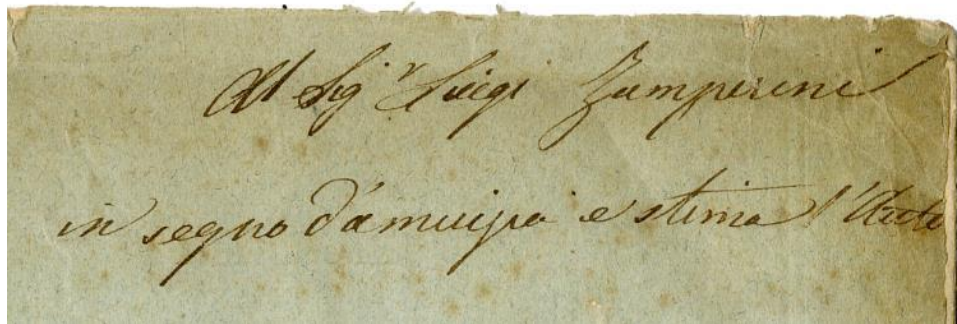 Al Sigr Luigi Zamperini
in segno d'amicizia e stima l'Auto